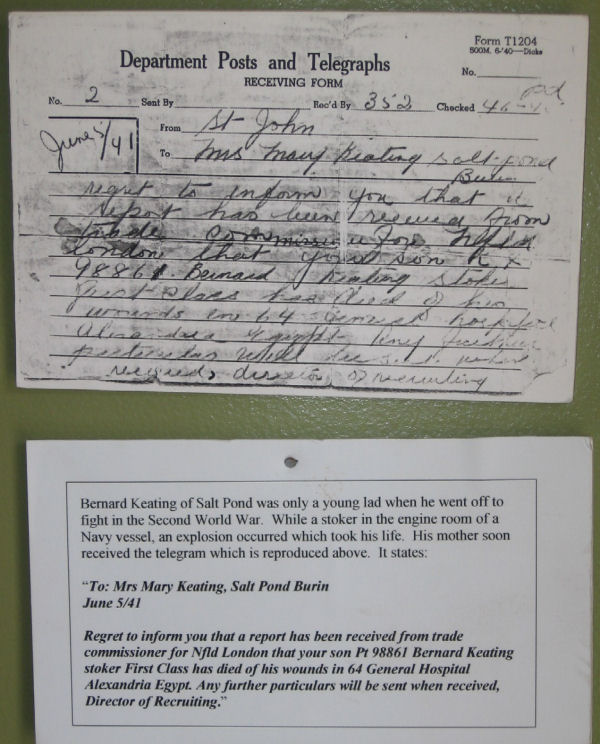 Form T1204
500M. 6-'40—Dicks
Department Posts and Telegraphs
RECEIVING FORM
No.
No. 2 Sent By Rec'd By 352 Checked 46
June 5/41
From St John
To Mrs Mary Keating Salt pond
Burin
regret to inform you that a
report has been received from
trade commissioner for Nfld
London that your son
98861 Bernard Keating stoker
First Class has died of his
wounds in 64 General hospital
Alexandria Egypt Any further
particulars will be sent when
received, director of recruiting
Bernard Keating of Salt Pond was only a young lad when he went off to
fight in the Second World War. While a stoker in the engine room of a
Navy vessel, an explosion occurred which took his life. His mother soon
received the telegram which is reproduced above. It states:
“To: Mrs Mary Keating, Salt Pond Burin
June 5/41
Regret to inform you that a report has been received from trade
commissioner for Nfld London that your son Pt 98861 Bernard Keating
stoker First Class has died of his wounds in 64 General Hospital
Alexandria Egypt. Any further particulars will be sent when received,
Director of Recruiting.”